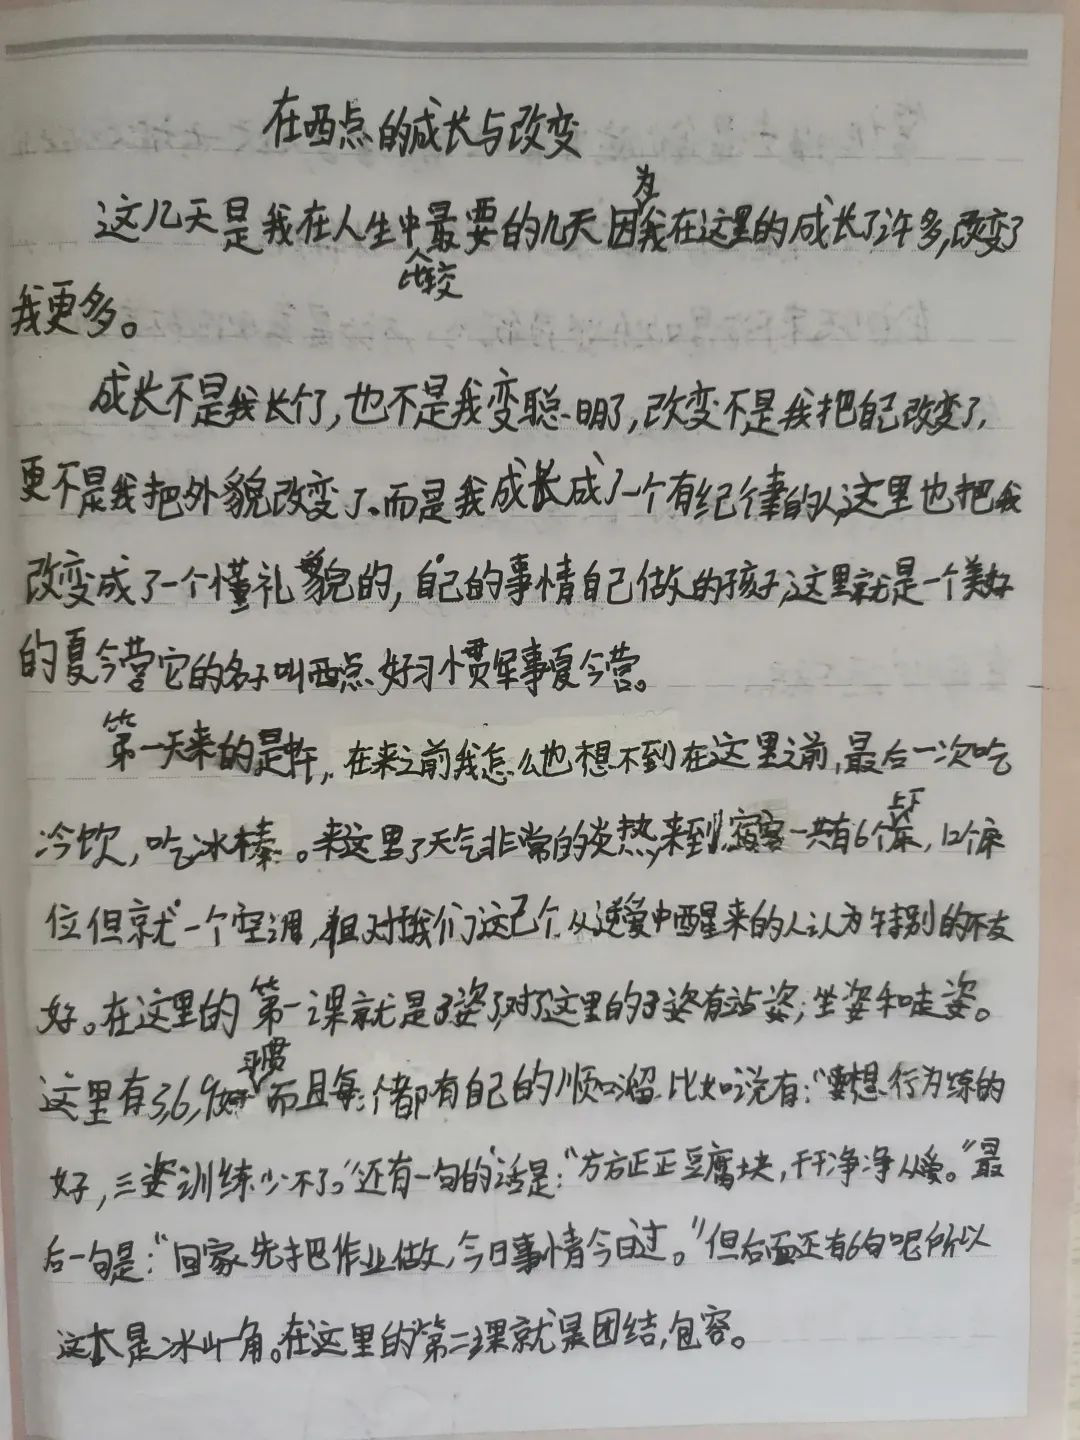 在西点的成长与改变
这几天是我在人生中比较最要的几天因为我在这里的成长了许多,改变了
我更多。
成长不是我长个了,也不是我变聪明了,改变不是我把自己改变了,
更不是我把外貌改变了。而是我成长成了一个有纪律的人,这里也把我
改变成了一个懂礼貌的,自己的事情自己做的孩子,这里就是一个美好
的夏令营它的名子叫西点好习惯军事夏令营。
第一天来的是,在来之前我怎么也想不到在这里之前,最后一次吃
冷饮,吃冰棒。来这里了天气非常的炎热,来到宿舍一共有6个上下床,12个床
位但就一个空调,相对我们这几个从中醒来的人认为特别的不友
好。在这里的第一课就是三姿了,对了这里的三姿有站姿;坐姿和走姿。
这里有36,9好习惯而且每个都有自己的顺口溜比如说有:"要想行为练的
好,三姿训练少不了。"还有一句的话是:"方方正正豆腐块,干干净净人人爱。"最
后一句是:"回家先把作业做,今日事情今日过。"但后面还有6句呢所以
这本是冰山一角。在这里的第二课就是团结,包容。